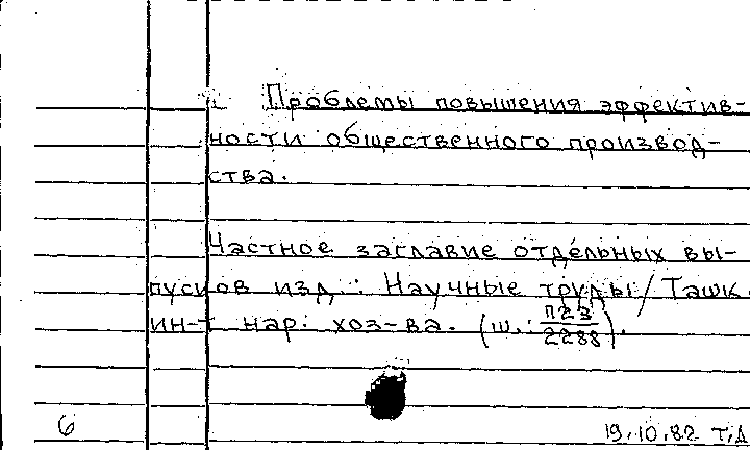 Проблемы повышения эффектив-
ности общественного производ-
ства.
Частное заглавие отдельных вы-
пусков изд.: Научные труды / Ташк.
ин-т нар. хоз-ва. (ш.: П23/2288).
6
19.10.82 Т.Д